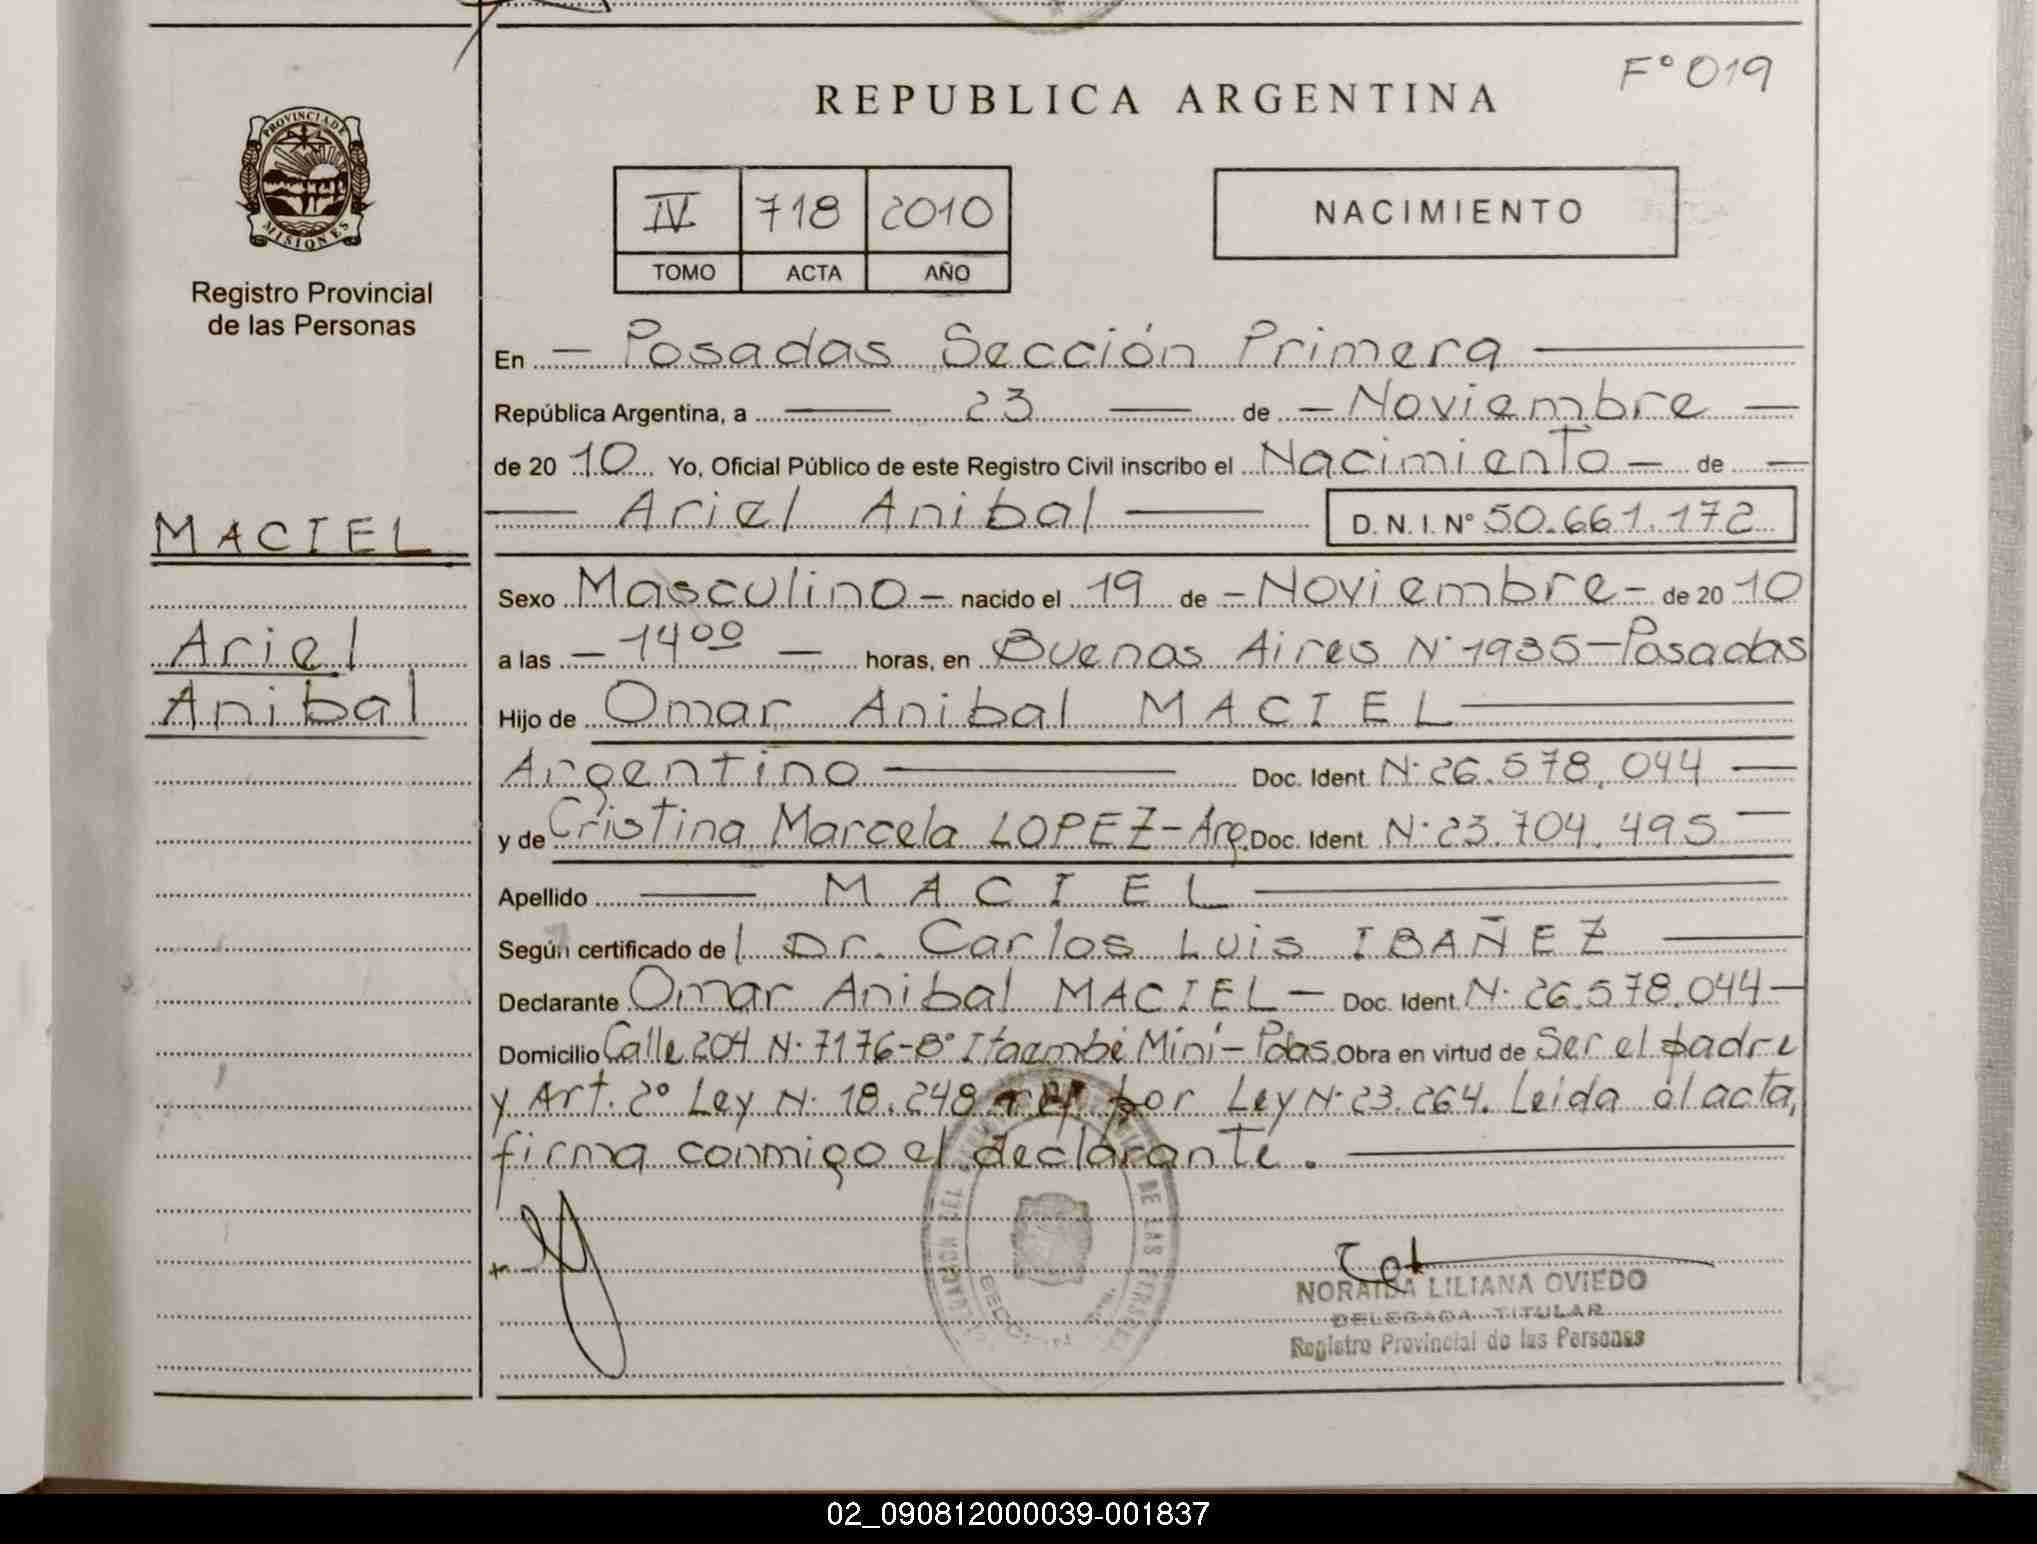 F° 019
REPUBLICA ARGENTINA
PROVINCIA DE
MISIONES
Registro Provincial
de las Personas
IV 718 2010
TOMO ACTA AÑO
NACIMIENTO
En — Posadas Sección Primera —
República Argentina, a — 23 — de — Noviembre —
de 20 10 Yo, Oficial Público de este Registro Civil inscribo el Nacimiento — de —
— Ariel Anibal — D. N. I. N° 50.661.172
MACIEL
Ariel
Anibal
Sexo Masculino — nacido el 19 de — Noviembre — de 20 10
a las — 14⁰⁰ — horas, en Buenos Aires N° 1935 — Posadas
Hijo de Omar Anibal MACIEL —
Argentino — Doc. Ident. N° 26.578.044 —
y de Cristina Marcela LOPEZ - Arg. Doc. Ident. N° 23.704.495 —
Apellido — MACIEL —
Según certificado de Dr. Carlos Luis IBAÑEZ —
Declarante Omar Anibal MACIEL — Doc. Ident. N° 26.578.044 —
Domicilio Calle 204 N° 7176 - B° Itaembé Miní - Pdas. Obra en virtud de Ser el padre
y Art. 2° Ley N° 18.248 por Ley N° 23.264. Leida el acta,
firma conmigo el declarante. —
DE LAS
NORAIDA LILIANA OVIEDO
DELEGADA TITULAR
Registro Provincial de las Personas
02_090812000039-001837